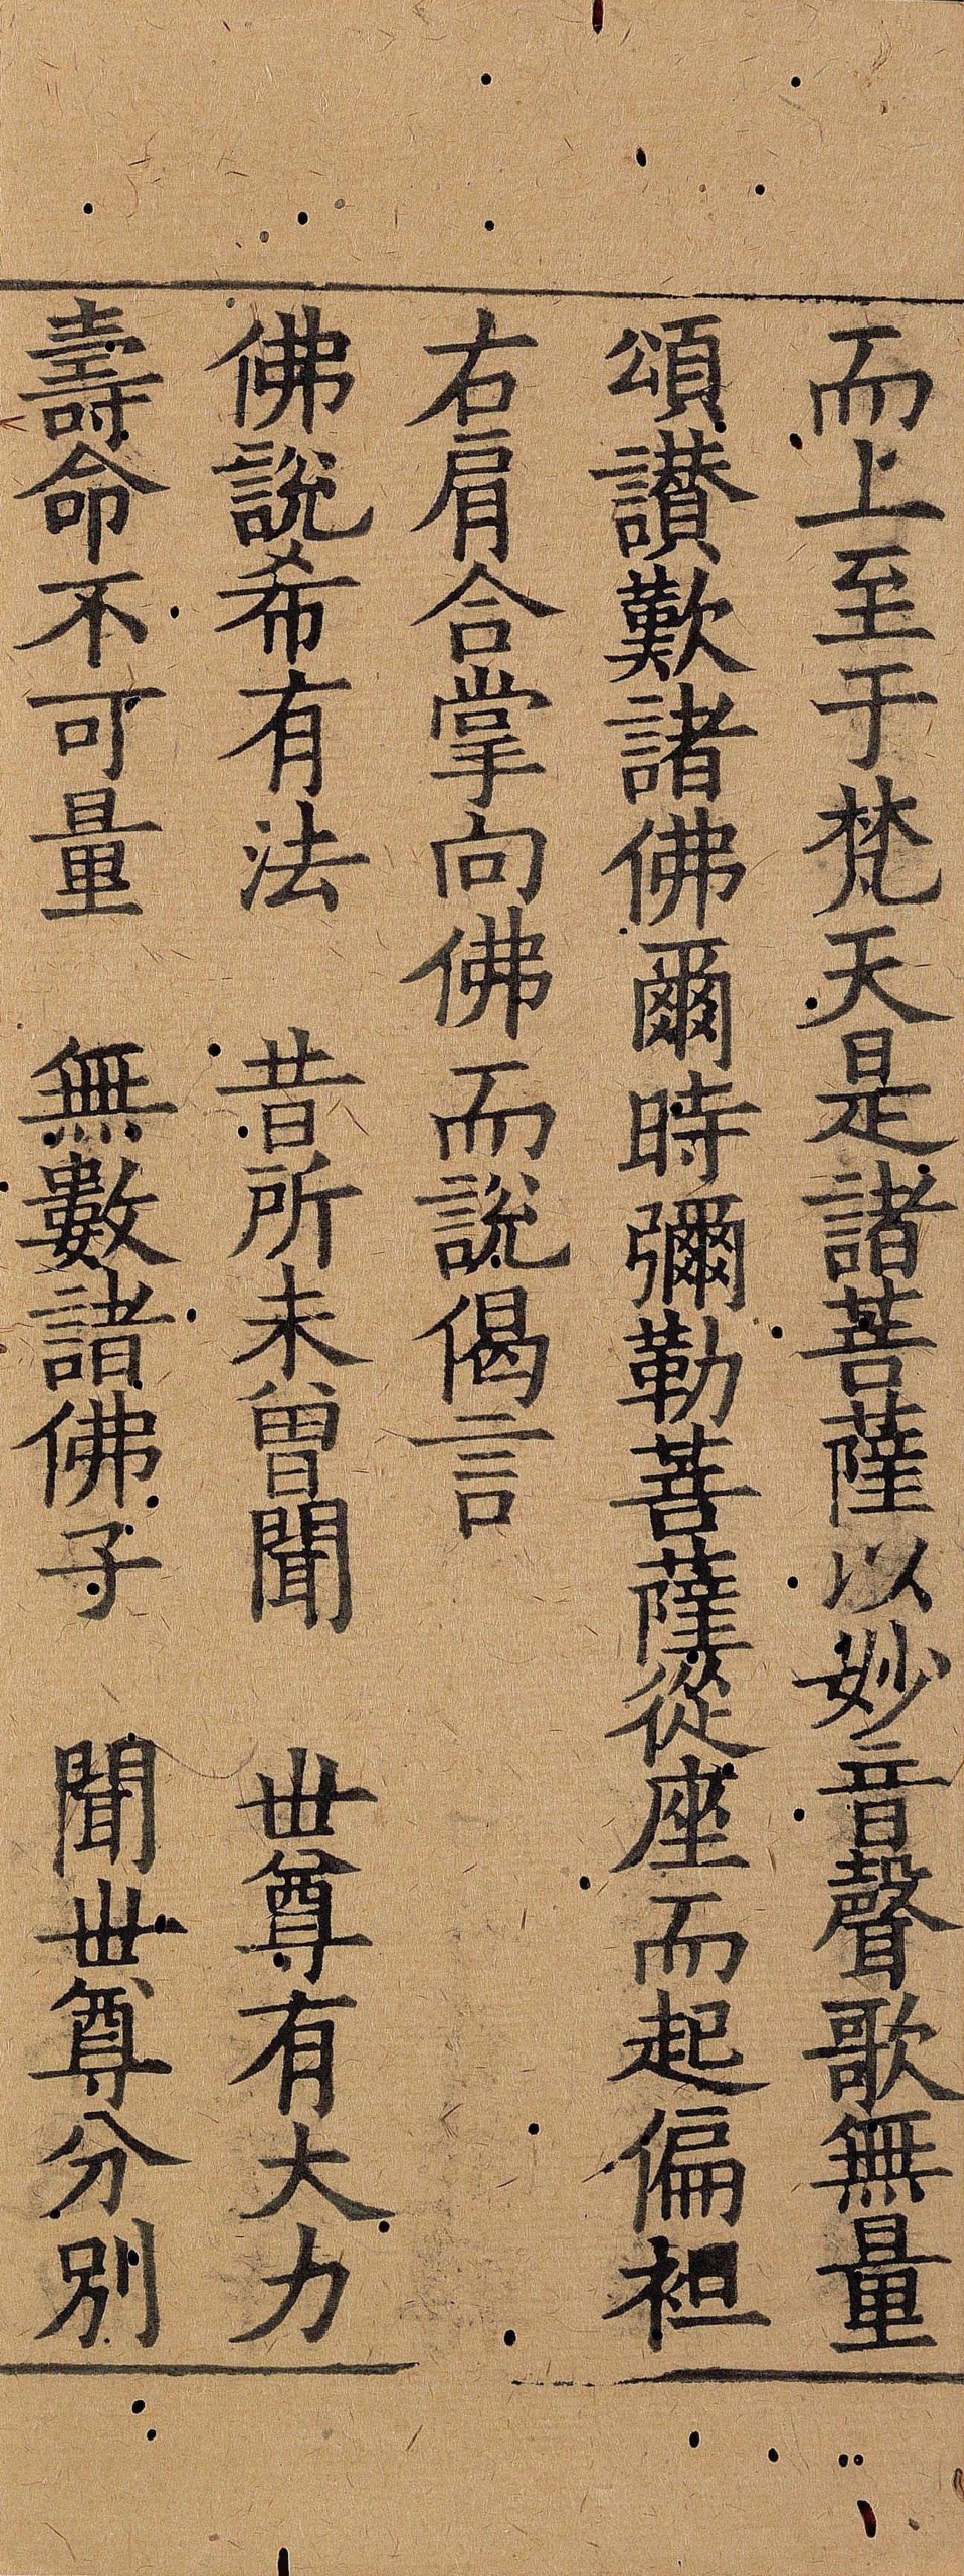 而上至于梵天是諸菩薩以妙音聲歌無量
頌讃歎諸佛爾時彌勒菩薩從座而起偏袒
右肩合掌向佛而說偈言
佛說希有法　昔所未曾聞　世尊有大力
壽命不可量　無數諸佛子　聞世尊分別